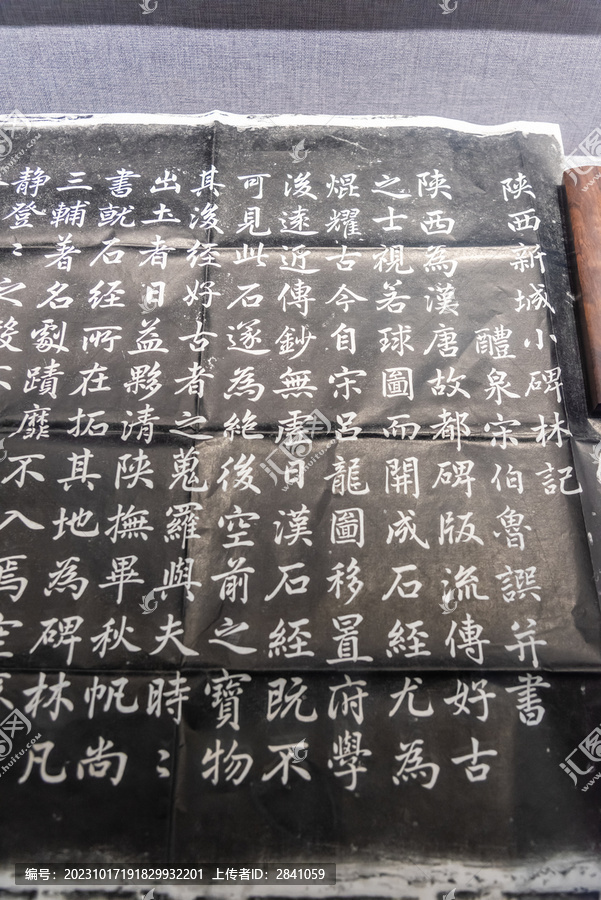 陝西新城小碑林記
醴泉宋伯魯譔并書
陝西為漢唐故都碑版流傳好古
之士視若球圖而開成石經尤為
焜耀古今自宋呂龍圖移置府學
後遠近傳鈔無虛日漢石經既不
可見此石遂為絕後空前之寶物
其後經好古者之蒐羅與夫時〻
出土者日益夥清陝撫畢秋帆尚
書就石經所在拓其地為碑林凡
三輔著名劇蹟靡不入焉
静登〻之
编号：20231017191829932201 上传者ID：2841059